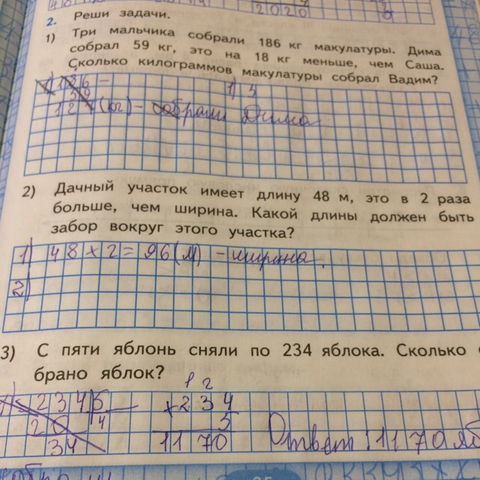 2. Реши задачи.
1) Три мальчика собрали 186 кг макулатуры. Дима
собрал 59 кг, это на 18 кг меньше, чем Саша.
Сколько килограммов макулатуры собрал Вадим?
(кг) - собрали Дима
2) Дачный участок имеет длину 48 м, это в 2 раза
больше, чем ширина. Какой длины должен быть
забор вокруг этого участка?
1) 48 × 2 = 96 (м) - ширина.
2)
3) С пяти яблонь сняли по 234 яблока. Сколько
брано яблок?
1 2
234 5 × 234
20 4 5
34 1170 Ответ: 1170 яб